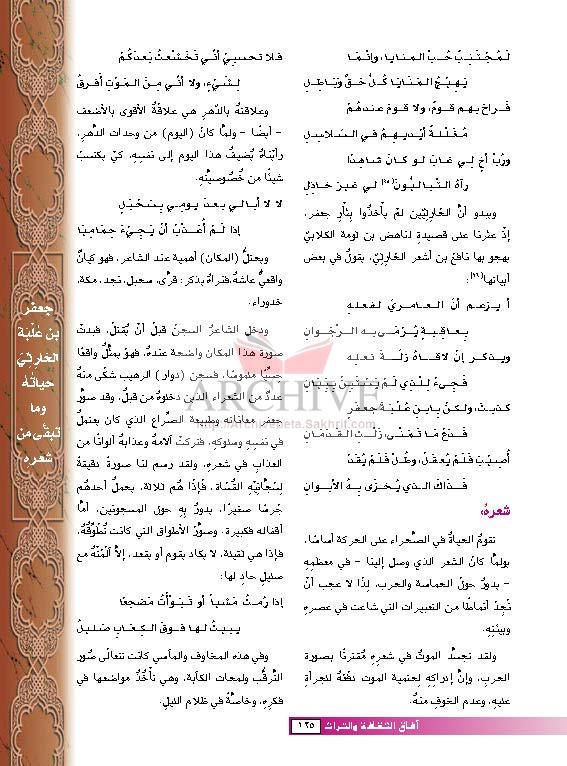 لَمُجْتَنِبٌ حُبَّ المنايا، وإنّما
يَهِيجُ المَنَايا كُلُّ حَقٍّ وَبَاطِلِ
فَراحَ بهم قومٌ، ولا قومَ عندهُمْ
مُغَلَّلَةً أيْدِيهِمُ في السلاسِلِ
ورُبَّ أخٍ لي غابَ لو كان شاهدًا
رآهُ التَّبَالِيُّونَ لي غيرَ خاذِلِ
ويبدو أنَّ الحَارِثِيّينَ لمْ يأخذُوا بِثَأرِ جعفر،
إذْ عثرنا على قصيدةٍ لناهض بن ثومة الكلابيِّ
يهجو بها نافعَ بن أشعر الحَارِثِيّ، يقولُ في بعض
أبياتها
أ يزعم أنَّ العامريَّ لفعلهِ
بِعاقبةٍ يُرْمَى به الرَّجَوانِ
ويذكر إنْ لاقاهُ زلَّةَ نعلِهِ
فجيءْ للذي لَمْ يَستَبِنْ بِبَيَانِ
كذبتَ، ولكنْ بابنِ عُلْبَةَ جعفرٍ
فدَعْ مَا تَمَنَّى، زلَّتِ القَدَمَانِ
أُصِيبَ فَلَمْ يُعقَلْ، وطُلَّ فَلَمْ يُقَدْ
فَذاكَ الذي يُخْزَى بِهُ الأبوانِ
شعرهُ:
تقومُ الحياةُ في الصَّحراء على الحركة أساسًا،
ولما كانَ الشعر الذي وصل إلينا – في معظمِهِ
– يدورُ حولَ الحماسة والحرب، لِذَا لا عجب أنْ
نَجِدَ أنماطًا من التعبيرات التي شاعت في عصرِهِ
وبيئتِهِ.
ولقد تجسَّد الموتُ في شعرِهِ مُقترنًا بصورة
الحرب، وإنَّ إدراكه لحتمية الموت دفعَهُ للجرأة
عليه، وعدم الخوف منهُ.
فلا تحسبي أنّي تَخَشَّعْتُ بَعدَكُمْ
لِشَيْءٍ، ولا أنّي مِنَ المَوْتِ أَفرَقُ
وعلاقتهُ بالدَّهر هي علاقةُ الأقوى بالأضعف
– أيضًا – ولمّا كانَ (اليوم) من وحدات الدَّهر،
رأيناهُ يُضيفُ هذا اليوم إلى نفسِهِ، كيّ يكتسبَ
شيئًا من خُصُوصيّتِهِ.
لا لا أبالي بعدَ يومي بِسَحْبَلٍ
إذا لَمْ أُعَذَّبْ أنْ يَجِيْءَ حِمَامِيَا
ويحتلُّ (المكان) أهمية عند الشاعر، فهو كيانٌ
واقعيٌّ عاشهُ، فنراهُ يذكر: قرَّى، سحبل، نجد، مكة،
خدوراء.
ودخل الشاعرُ السجنَ قبلَ أنْ يُقتلَ، فبدتْ
صورة هذا المكان واضحة عندهُ، فهو يمثِّلُ واقعًا
حسيًّا ملموسًا، فسجن (دوار) الرهيب شكى منهُ
عددٌ من الشعراء الذين دخلوهُ من قبلُ، وقد صوّر
جعفر معاناته وطبيعة الصِّراع الذي كان يعتملُ
في نفسِهِ وسلوكه، فتركتْ آلامهُ وعذابهُ ألوانًا من
العذاب في شعرِهِ، ولقد رسم لنا صورةً دقيقةً
لِسَجَّانِيهِ القُسَاةِ، فإذَا هُم ثلاثة، يحملُ أحدهُم
جُرسًا صغيرًا، يدورُ بِهِ حول المسجونين، أمّا
أقفاله فكبيرة، وصوَّر الأطواق التي كانت تُطوِّقُهُ،
فإذا هي ثقيلة، لا يكاد يقوم أو يقعد، إلاَّ آلَمَتْهُ مع
صليلٍ حادٍ لها:
إذا رُمتُ مَشْياً أو تَبَوَّأتُ مَضجعًا
يبيتُ لها فوقَ الكِعَابِ صَليلُ
وفي هذه المخاوف والمآسي كانت تتعالَى صُورُ
التَّرقُّبِ ولمحات الكآبة، وهي تأخُذُ مواضعها في
فكرِهِ، وخاصّةً في ظلام الليلِ.
جعفر
بن عُلْبَة
الحَارِثيّ
حياتُهُ
وما
تبقَّى من
شعره
ARCHIVE
http://Archivebeta.Sakhrit.com
آفاق الثقافة والتراث ١٢٥